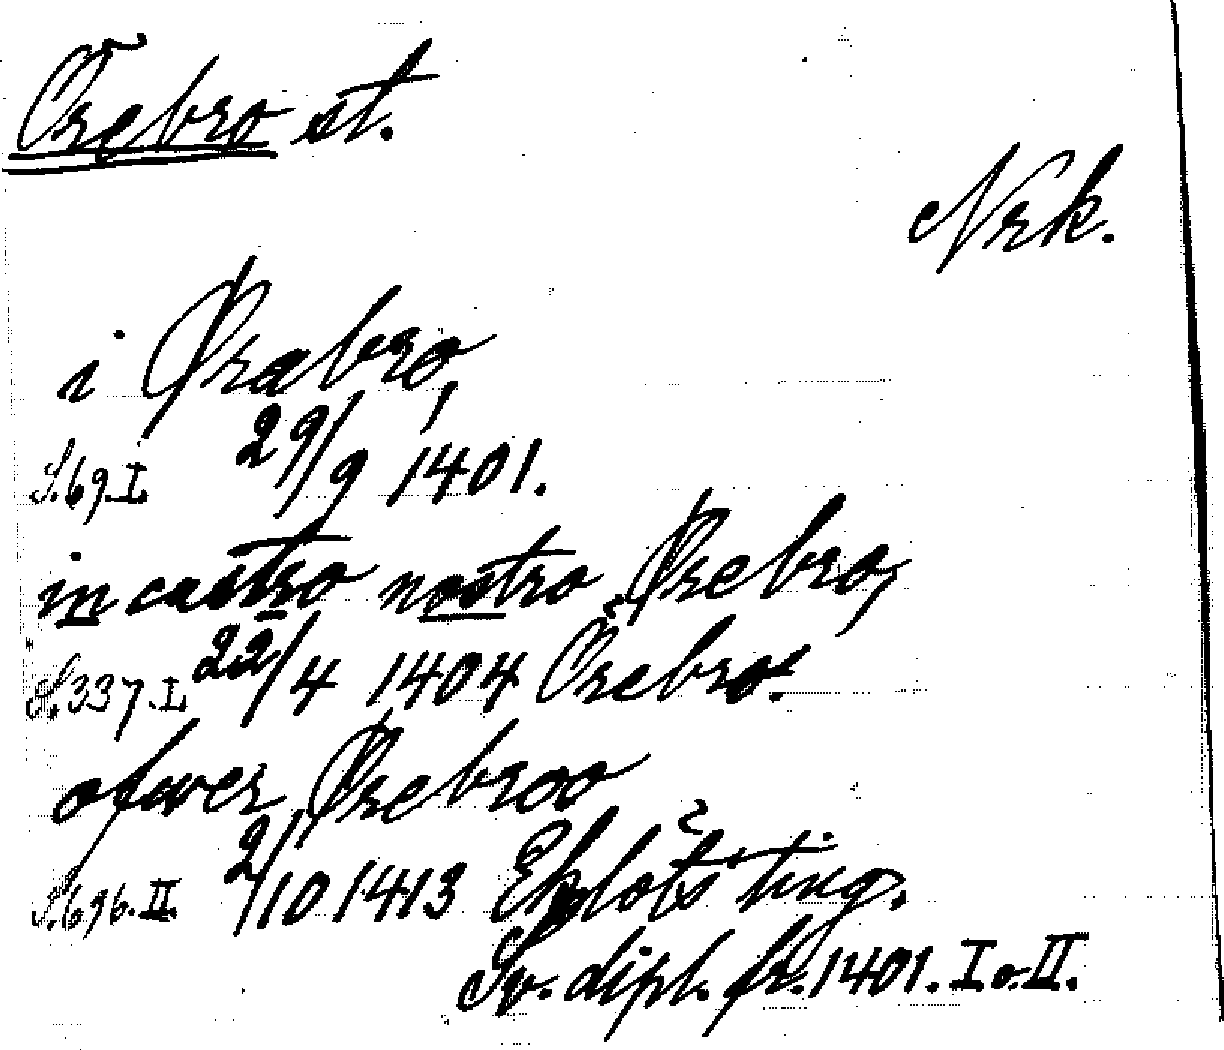 Örebro st.
Nrk.
i Ørabro,
S. 69. I. 29/9 1401.
in castro nostro Ørebro,
S. 337. I. 22/4 1404 Örebro.
ofwer Ørebroo
S. 696. II. 2/10 1413 ting.
Sv. dipl. fr. 1401. I o. II.